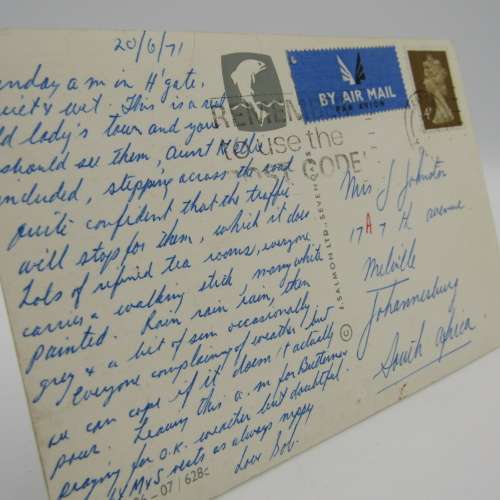 20/6/71
nday a.m in H'gate,
quiet & wet. This is a real
ld lady's town and you
should see them, Aunt Nellie
included, stepping across the road
quite confident that the traffic
will stop for them, which it does
Lots of refined tea rooms, everyone
carries a walking stick, many white
painted. Rain rain rain, then
grey & a bit of sun occasionally
Everyone complaining of weather, but
we can cope if it doesn't actually
pour. Leaving this a.m for Buttermere
praying for O.K. weather but doubtful.
vests as always nappy
Love Bob.
REMEM
to use the
CODE'
BY AIR MAIL
PAR AVION
Mrs J Johnston
17A 7th avenue
Melville
Johannesburg
South Africa
© J. SALMON LTD., SEVENOAKS
07 | 628c